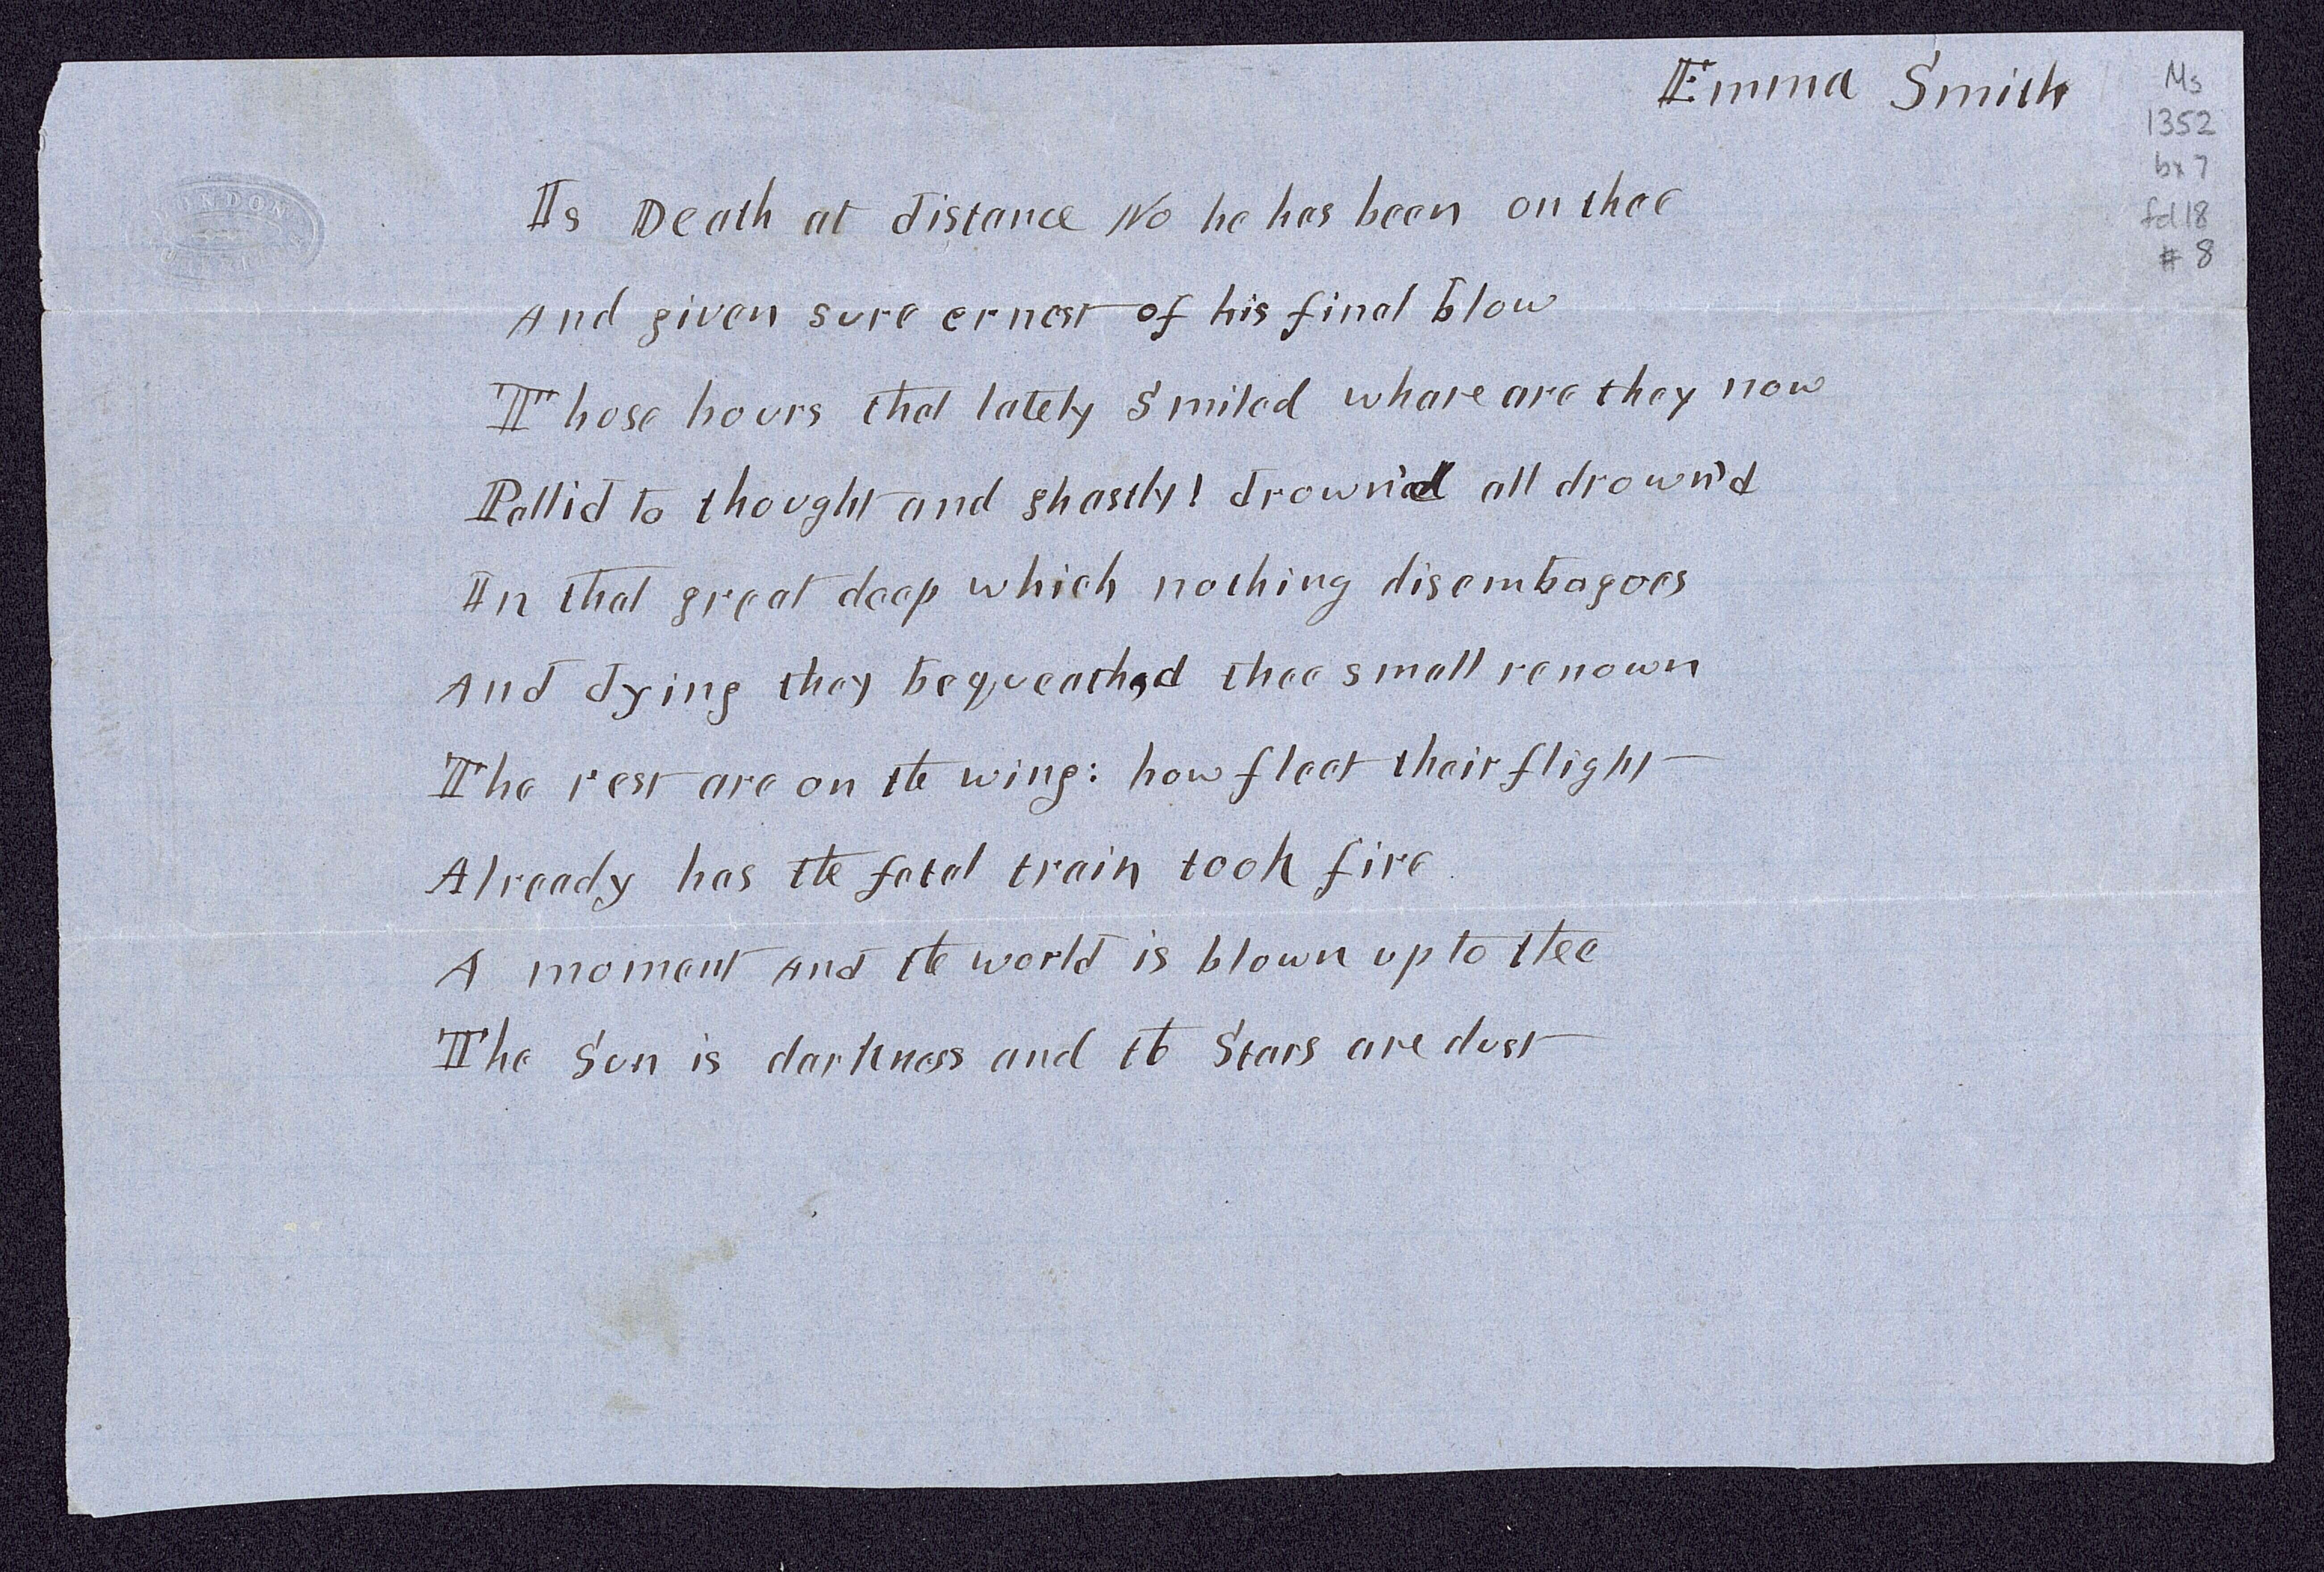 Emma Smith
Ms
1352
bx 7
fd 18
# 8
LONDON
Is Death at distance No he has been on thee
And given sure ernest of his final blow
Those hours that lately Smiled whare are they now
Pallid to thought and ghastly! drown'd all drown'd
In that great deep which nothing disembogoes
And dying they bequeathed thee small renown
The rest are on the wing: how fleet their flight
Already has the fatal train took fire
A moment and the world is blown up to thee
The Sun is darkness and the Stars are dust